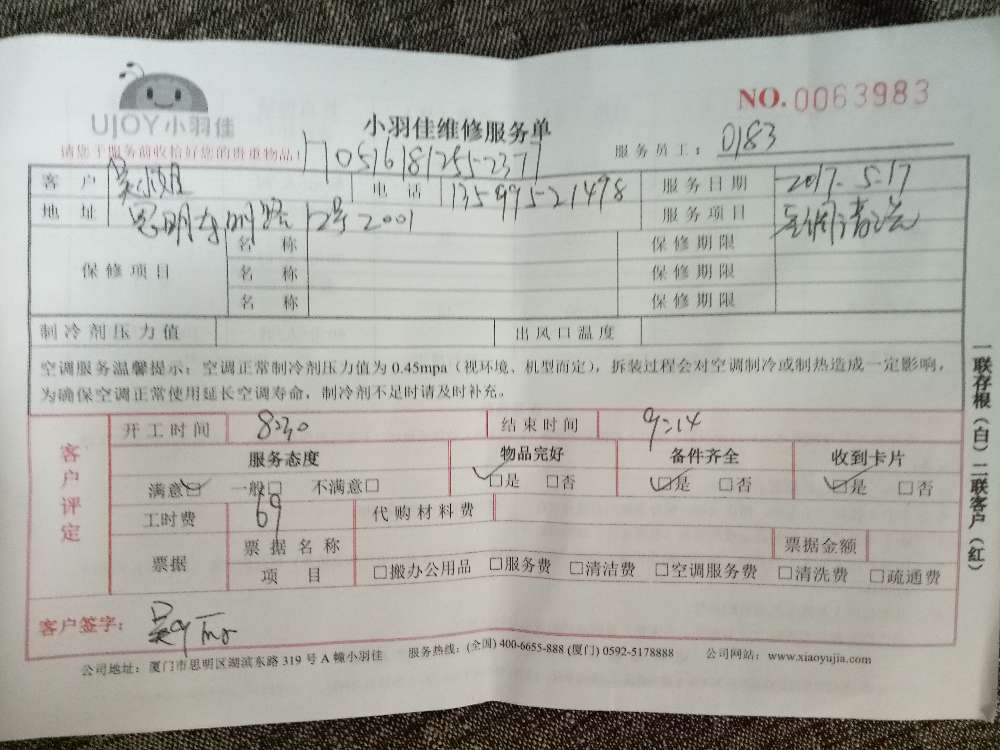 UJOY小羽佳
NO.0063983
小羽佳维修服务单
请您于服务前收拾好您的贵重物品！
服务员工： 0183
客 户 吴小姐 电 话 13599521498 服务日期 2017.5.17
地 址 思明东明路 12号2001 服务项目 空调清洗
保修项目 名 称 保修期限
名 称 保修期限
名 称 保修期限
制冷剂压力值 出风口温度
空调服务温馨提示：空调正常制冷剂压力值为 0.45mpa（视环境、机型而定），拆装过程会对空调制冷或制热造成一定影响，
为确保空调正常使用延长空调寿命，制冷剂不足时请及时补充。
客户评定
开工时间 8:30 结束时间 9:14
服务态度 物品完好 备件齐全 收到卡片
满意☑ 一般□ 不满意□ ☑是 □否 ☑是 □否 ☑是 □否
工时费 69 代购材料费
票据 票据名称 票据金额
项 目 □搬办公用品 □服务费 □清洁费 □空调服务费 □清洗费 □疏通费
客户签字：
公司地址：厦门市思明区湖滨东路 319 号 A 幢小羽佳 服务热线：(全国) 400-6655-888 (厦门) 0592-5178888 公司网站：www.xiaoyujia.com
一联存根（白）二联客户（红）